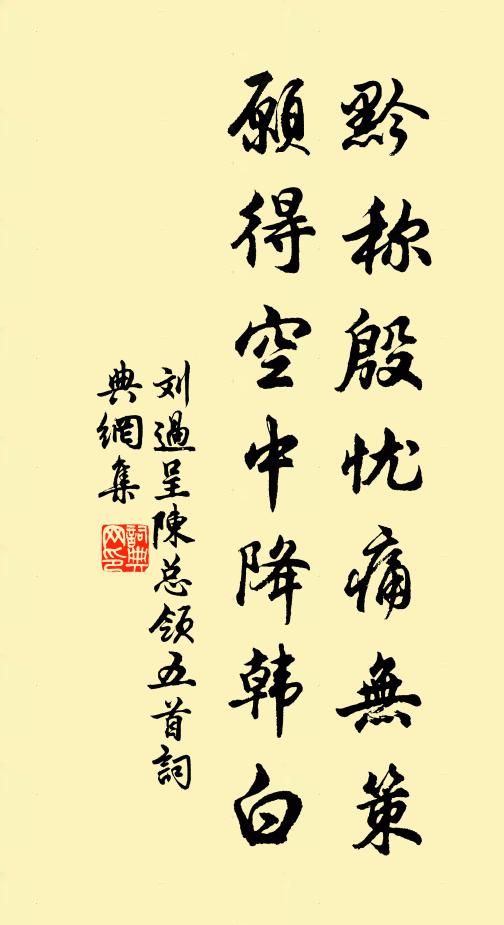 黔称殷忧痛無策
願得空中降韩白
刘過呈陳总领五首詞
典網集
詞典
网印